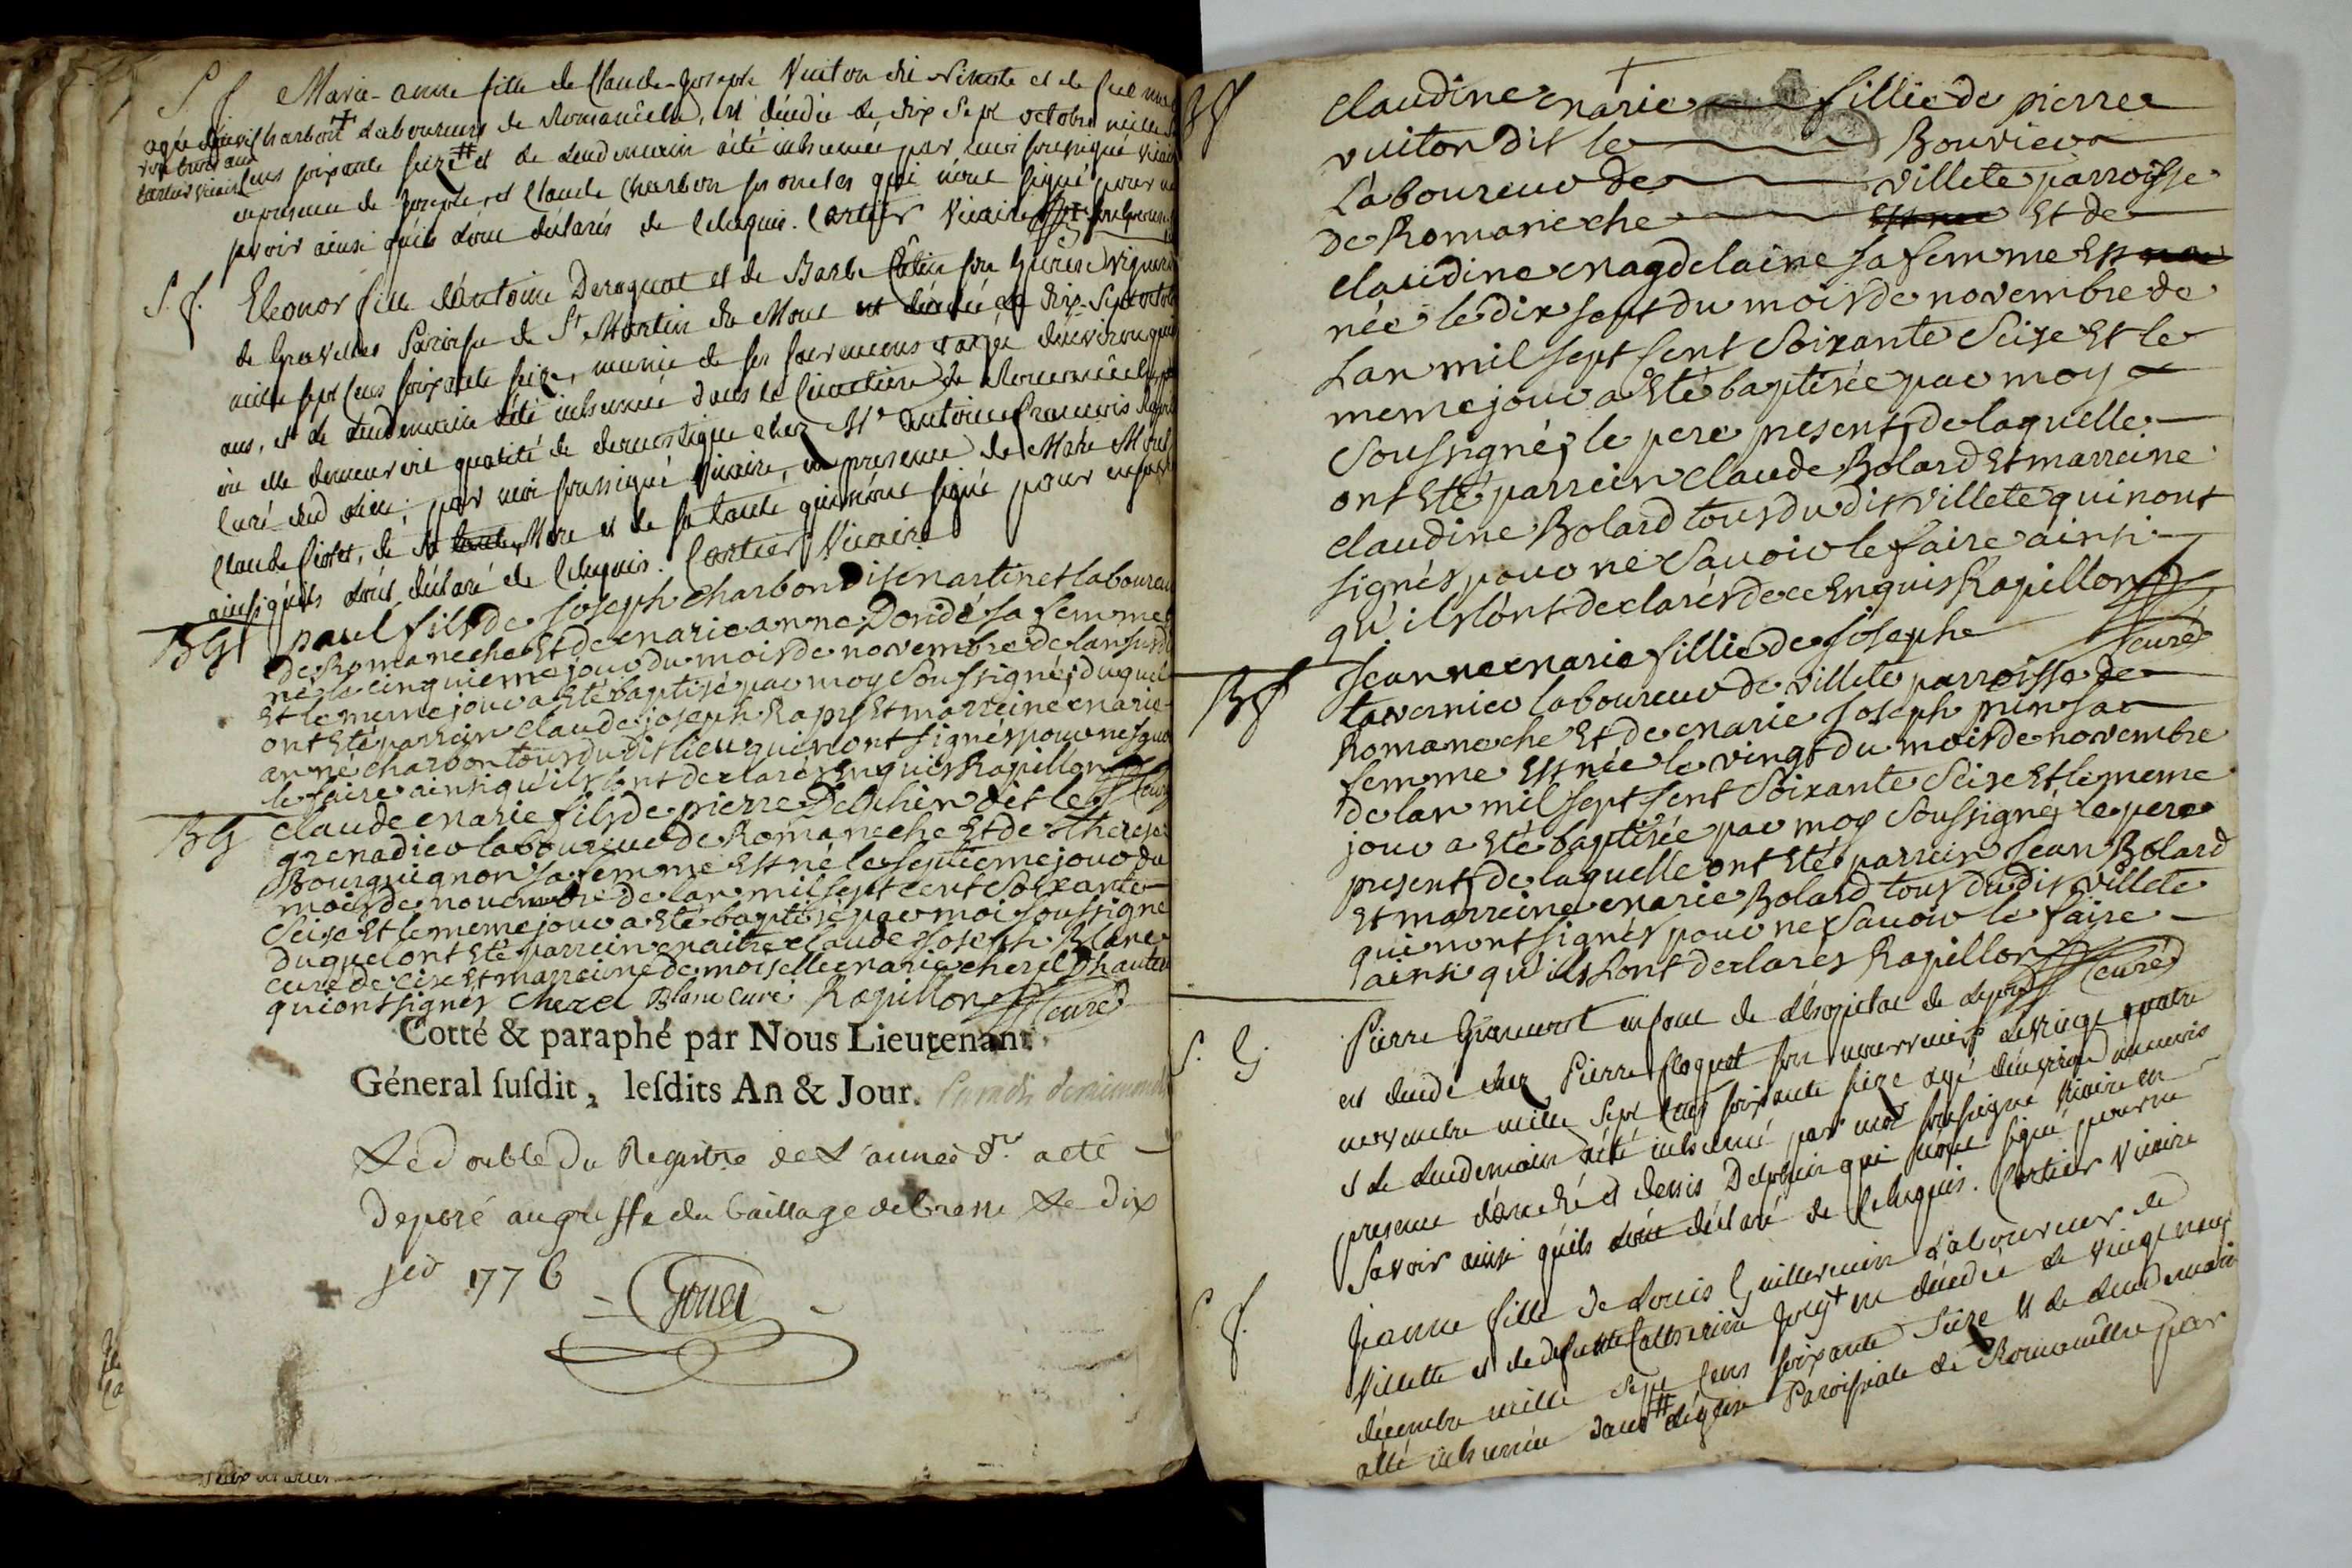 S. f. Marie-anne fille de Claude-Joseph Vuiton dit et de
Charbon laboureurs de Romanèche, est décédée le dix sept octobre mille
agée
vingt trois ans
Cartier vicaire
cens soixante seize # et le lendemain a été inhumée par moi soussigné vicaire
en presence de Joseph, et Claude Charbon ses oncles qui n'ont signé pour ne
savoir ainsi qu'ils l'ont déclarés de ce enquis. Cartier Vicaire
S. f. Eleonor fille d'antoine Deroquat et de Barbe
de Gravelles Paroisse de St Martin du Mont est décédée le dix-sept octobre
mille sept cens soixante seize, munie de ses sacremens et agée d'environ
ans, et le lendemain a été inhumée dans le Cimetiere de Romanèche
où elle demeuroit qualité de domestique chez Mr antoine francois
Curé dud lieu, par moi soussigné Vicaire, en presence de
Claude de sa tante, Mere et de sa tante qui n'ont signé pour
ainsi qu'ils l'ont déclaré de ce enquis. Cartier Vicaire
BG paul fils de joseph charbon dit martinet laboureur
de Romaneche Et de marie anne Dondé sa femme
né le cinquieme jour du mois de novembre de lan susdit
Et le meme jour a Eté baptisé par moy Soussigné, duquel
ont Eté parrein claude joseph Rapy Et marreine marie
anne charbon tous du dit lieu qui n'ont signés pour ne
le faire ainsi qu'ils l'ont declarés Enquis Rapillon curé
BG claude marie fils de pierre Delphin dit le
grenadier laboureur de Romaneche Et de therese
Bourguignon sa femme Est né le septieme jour du
mois de novembre de lan mil sept cent Soixante
Seize Et le meme jour a Eté baptisé par moi soussigné
duquel ont Eté parrein maitre claude joseph Blanc
curé de cize Et marreine demoiselle marie cherel
qui ont signés Cherel Blanc curé Rapillon curé
Cotté & paraphé par Nous Lieutenant
Géneral susdit, lesdits An & Jour.
Le double du Registre de l'année dre a été
Deposé au greffe du baillage de bresse le dix
1776
Gouet
Bf claudine marie fillie de pierre
vuiton dit le Bouvier
Laboureur de villete parroisse
de Romaneche Est née Et de
claudine magdelaine sa femme Est
née le dix sept du mois de novembre de
Lan mil sept cent Soixante Seize Et le
meme jour a Eté baptisée par moy
Soussigné, le pere present, de laquelle
ont Eté parrein claude Bolard Et marreine
claudine Bolard tous du dit villete qui n'ont
signés pour ne Savoir le faire ainsi
qu'ils l'ont declarés de ce Enquis Rapillon
curé
Bf jeanne marie fillie de joseph
tavernier laboureur de villete parroisse de
Romaneche Et de marie joseph sa
femme Est née le vingt du mois de novembre
de lan mil sept cent Soixante Seize Et le meme
jour a Eté baptisée par moy Soussigné, le pere
present, de laquelle ont Eté parrein jean Bolard
Et marreine marie Bolard tous du dit villete
qui n'ont signés pour ne Savoir le faire
ainsi qu'ils l'ont declarés Rapillon curé
S. G. Pierre enfant de l'hopital de
est décédé chez Pierre floquet son nourricier le vingt quatre
novembre mille sept cens soixante seize agé d'environ
et le lendemain a été inhumé par moi soussigné Vicaire en
presence d'andré et denis Delphin qui n'ont signé pour ne
savoir ainsi qu'ils l'ont déclaré de ce enquis. Cartier Vicaire
S. f. Jeanne fille de Louis Guillermin laboureur de
Villette et de defunte Catherine Joly + est décédée le vingt neuf
décembre mille sept cens soixante seize et le lendemain
a été inhumée dans # l'église Paroissiale de Romanèche par